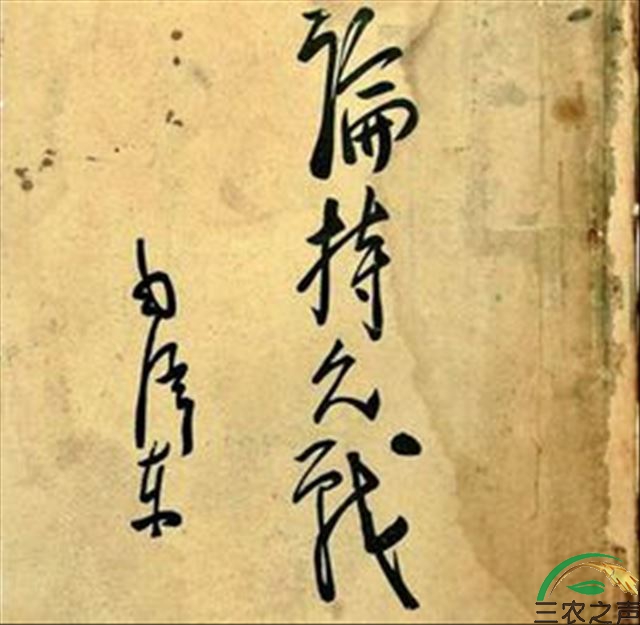 論持久戰
毛澤东
三农之声